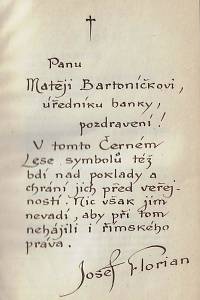 Panu
Matěji Bartoníčkovi,
úředníku banky,
pozdravení!
V tomto Černém
Lese symbolů též
bdí nad poklady a
chrání jich před veřej-
ností. Nic však jim
nevadí, aby při tom
nehájili i římského
práva.
Josef Florian